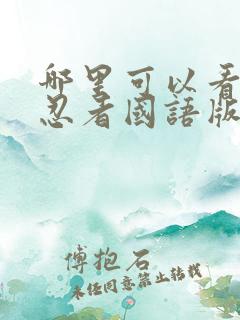 哪里可以看
忍者國語版
傅抱石
未任同意禁止转载